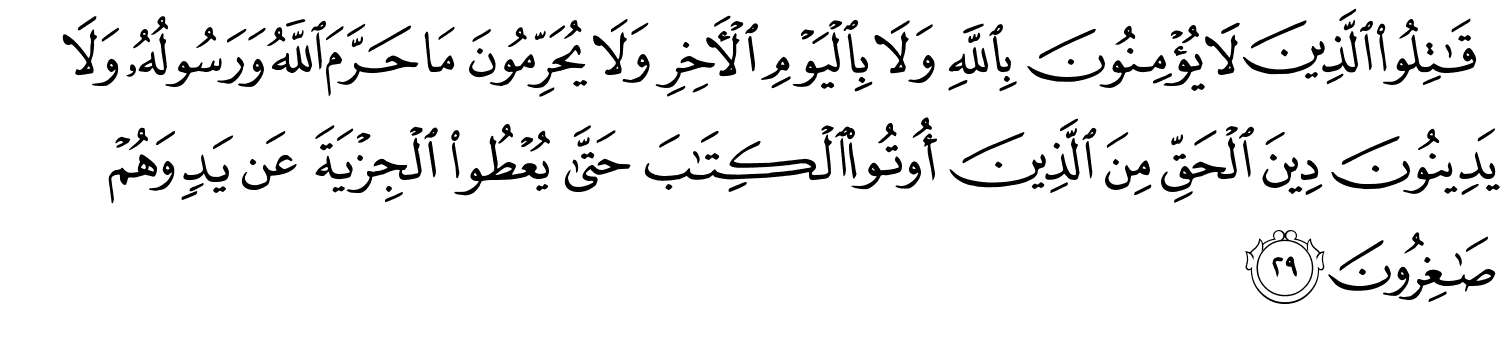 قَٰتِلُوا۟ ٱلَّذِينَ لَا يُؤْمِنُونَ بِٱللَّهِ وَلَا بِٱلْيَوْمِ ٱلْأَخِرِ وَلَا يُحَرِّمُونَ مَا حَرَّمَ ٱللَّهُ وَرَسُولُهُۥ وَلَا
يَدِينُونَ دِينَ ٱلْحَقِّ مِنَ ٱلَّذِينَ أُوتُوا۟ ٱلْكِتَٰبَ حَتَّىٰ يُعْطُوا۟ ٱلْجِزْيَةَ عَن يَدٍ وَهُمْ
صَٰغِرُونَ ٢٩